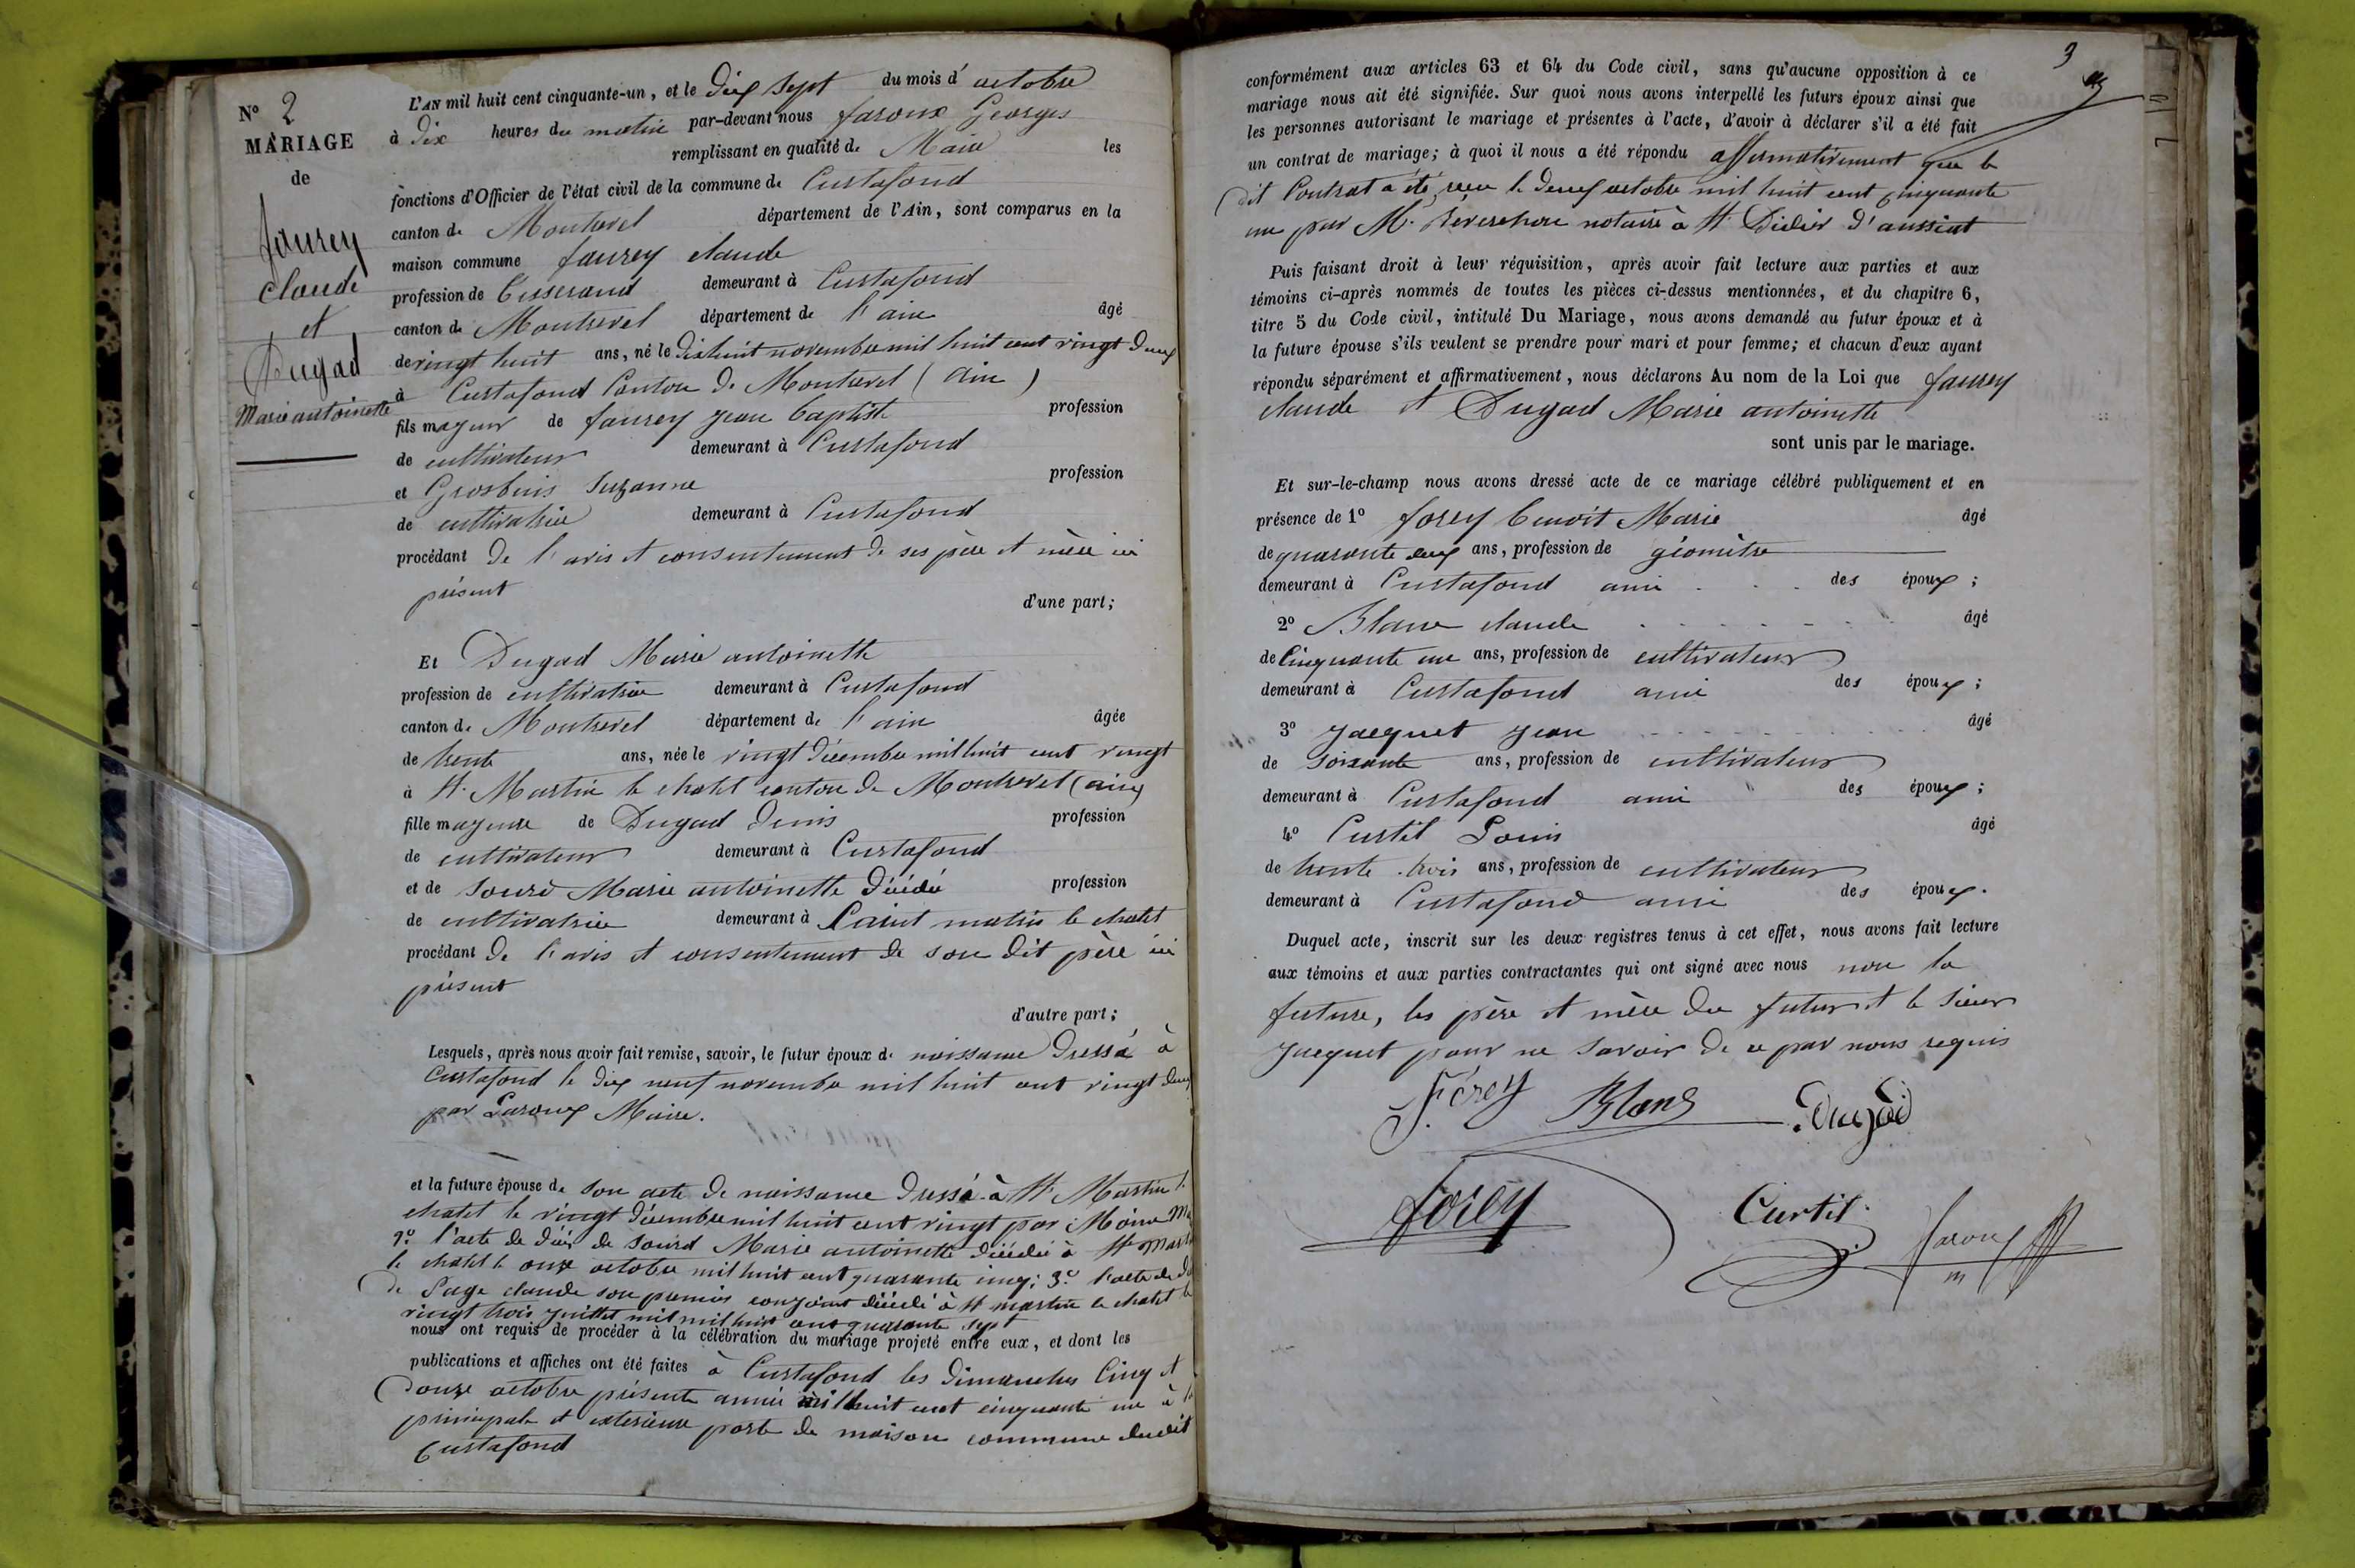 N° 2
MARIAGE
de
faurey
claude
et
Dugad
Marie antoinette
L'AN mil huit cent cinquante-un, et le dix sept du mois d' octobre
à dix heures du matin par-devant nous faroux Georges
remplissant en qualité de Maire les
fonctions d'Officier de l'état civil de la commune de Curtafond
canton de Montrevel département de l'Ain, sont comparus en la
maison commune faurey claude
profession de tisserand demeurant à Curtafond
canton de Montrevel département de l'ain âgé
de vingt huit ans, né le dix huit novembre mil huit cent vingt deux
à Curtafond Canton de Montrevel (Ain)
fils majeur de faurey jean baptiste profession
de cultivateur demeurant à Curtafond
et Grosbuis Suzanne profession
de cultivatrice demeurant à Curtafond
procédant de l'avis et consentement de ses père et mère ici
présent
d'une part;
Et Dugad Marie antoinette
profession de cultivatrice demeurant à Curtafond
canton de Montrevel département de l'ain âgée
de trente ans, née le vingt décembre mil huit cent vingt
à St Martin le chatel canton de Montrevel (ain)
fille majeure de Dugad denis profession
de cultivateur demeurant à Curtafond
et de Sourd Marie antoinette décédée profession
de cultivatrice demeurant à Saint matin le chatel
procédant de l'avis et consentement de son dit père ici
présent
d'autre part;
Lesquels, après nous avoir fait remise, savoir, le futur époux de naissance dressé à
Curtafond le dix neuf novembre mil huit cent vingt deux
par Maire.
et la future épouse de son acte de naissance dressé à St Martin le
chatel le vingt décembre mil huit cent vingt par Moine
l'acte de décès de Sourd Marie antoinette décédée à St Mart
le chatel le onze octobre mil huit cent quarante cinq; 3° l'acte de
de Page claude son premier conjoint décédé à St martin le chatel le
vingt trois juillet mil mil huit cent quarante sept
nous ont requis de procéder à la célébration du mariage projeté entre eux, et dont les
publications et affiches ont été faites à Curtafond les dimanches Cinq et
Douze octobre présente année mil huit cent cinquante un à la
principale et exterieure porte de maison commune dudit
Curtafond
3
conformément aux articles 63 et 64 du Code civil, sans qu'aucune opposition à ce
mariage nous ait été signifiée. Sur quoi nous avons interpellé les futurs époux ainsi que
les personnes autorisant le mariage et présentes à l'acte, d'avoir à déclarer s'il a été fait
un contrat de mariage; à quoi il nous a été répondu affirmativement que le
dit Contrat a été reçu le deux octobre mil huit cent cinquante
un par Me notaire à St Didier d'aussiat
Puis faisant droit à leur réquisition, après avoir fait lecture aux parties et aux
témoins ci-après nommés de toutes les pièces ci-dessus mentionnées, et du chapitre 6,
titre 5 du Code civil, intitulé Du Mariage, nous avons demandé au futur époux et à
la future épouse s'ils veulent se prendre pour mari et pour femme; et chacun d'eux ayant
répondu séparément et affirmativement, nous déclarons Au nom de la Loi que faurey
claude et Dugad Marie antoinette
sont unis par le mariage.
Et sur-le-champ nous avons dressé acte de ce mariage célébré publiquement et en
présence de 1° forey benoit Marie âgé
de quarante deux ans, profession de géomètre
demeurant à Curtafond ami des époux;
2° Blanc claude âgé
de Cinquante un ans, profession de cultivateur
demeurant à Curtafond ami des époux;
3° Jacquet jean âgé
de soixante ans, profession de cultivateur
demeurant à Curtafond ami des époux;
4° Curtil Louis âgé
de trente trois ans, profession de cultivateur
demeurant à Curtafond ami des époux.
Duquel acte, inscrit sur les deux registres tenus à cet effet, nous avons fait lecture
aux témoins et aux parties contractantes qui ont signé avec nous non la
future, les père et mère du futur et le Sieur
jacquet pour ne savoir de ce par nous requis
Forey Blanc Dugad
forey Curtil faroux
m